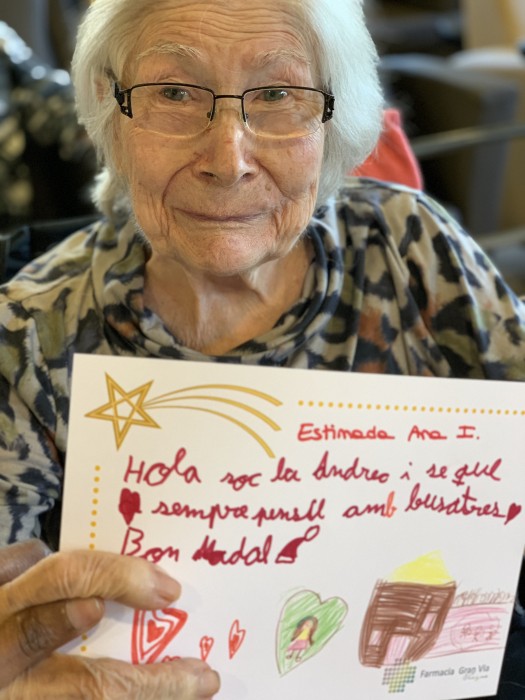 Estimada Ana I.
Hola soc la Andreo i se que
sempre pensu amb busatres
Bon Nadal
Farmacia Gran Via